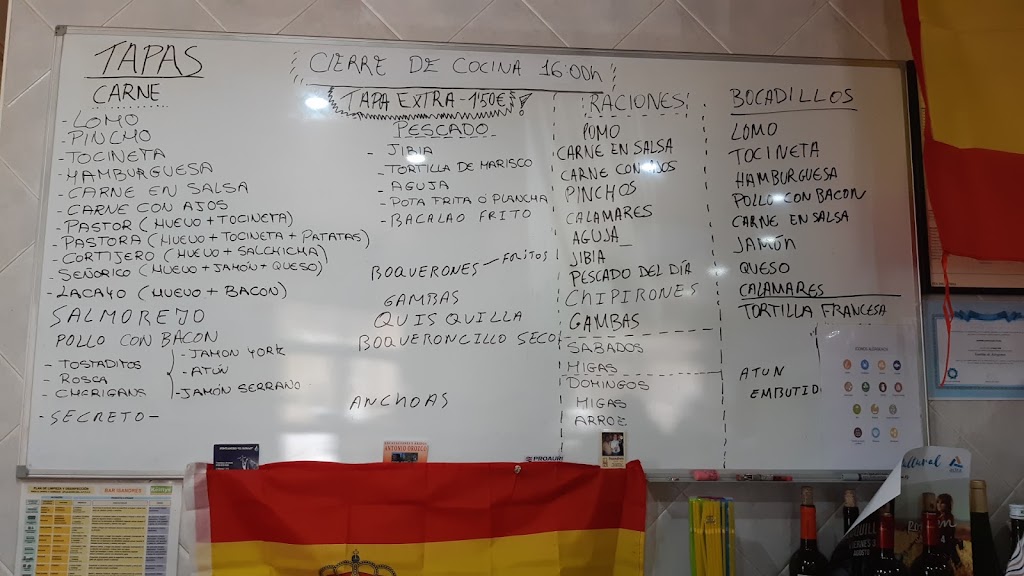 TAPAS
CIERRE DE COCINA 16:00h
TAPA EXTRA - 1'50€
CARNE
- LOMO
- PINCHO
- TOCINETA
- HAMBURGUESA
- CARNE EN SALSA
- CARNE CON AJOS
- PASTOR (HUEVO + TOCINETA)
- PASTORA (HUEVO + TOCINETA + PATATAS)
- CORTIJERO (HUEVO + SALCHICHA)
- SEÑORICO (HUEVO + JAMÓN + QUESO)
- LACAYO (HUEVO + BACON)
SALMOREJO
POLLO CON BACON
- TOSTADITOS
- ROSCA
- CHERIGANS
- JAMON YORK
- ATÚN
- JAMÓN SERRANO
- SECRETO -
PESCADO
- JIBIA
- TORTILLA DE MARISCO
- AGUJA
- POTA FRITA O PLANCHA
- BACALAO FRITO
BOQUERONES - FRITOS
GAMBAS
QUISQUILLA
BOQUERONCILLO SECO
ANCHOAS
RACIONES
LOMO
CARNE EN SALSA
CARNE CON AJOS
PINCHOS
CALAMARES
AGUJA
JIBIA
PESCADO DEL DÍA
CHIPIRONES
GAMBAS
SABADOS
MIGAS
DOMINGOS
MIGAS
ARROZ
BOCADILLOS
LOMO
TOCINETA
HAMBURGUESA
POLLO CON BACON
CARNE EN SALSA
JAMÓN
QUESO
CALAMARES
TORTILLA FRANCESA
ATUN
EMBUTID
ANTONIO OROZCO
PROAUR
PLAN DE LIMPIEZA Y DESINFECCIÓN